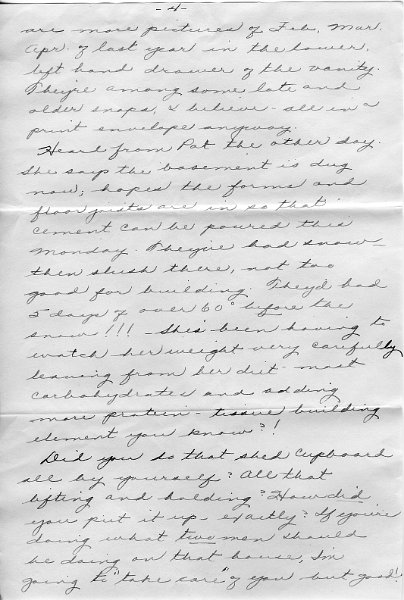 -4-
are more pictures of Feb, Mar.
Apr. of last year in the lower,
left hand drawer of the vanity.
They're among some late and
older snaps, I believe - all in a
print envelope anyway.
Heard from Pat the other day.
She says the basement is dug
now; hopes the forms and
floor joists are in so that
cement can be poured this
Monday. They've had snow -
then slush there, not too
good for building. They'd had
5 days of over 60° before the
snow!!! - She's been having to
watch her weight very carefully
leaving from her diet - most
carbohydrates and adding
more protein - tissue building
element you know?!
Did you do that shed cupboard
all by yourself? All that
lifting and holding? How did
you put it up - exactly? If you're
doing what two men should
be doing on that house, I'm
going to "take care" of you but good!